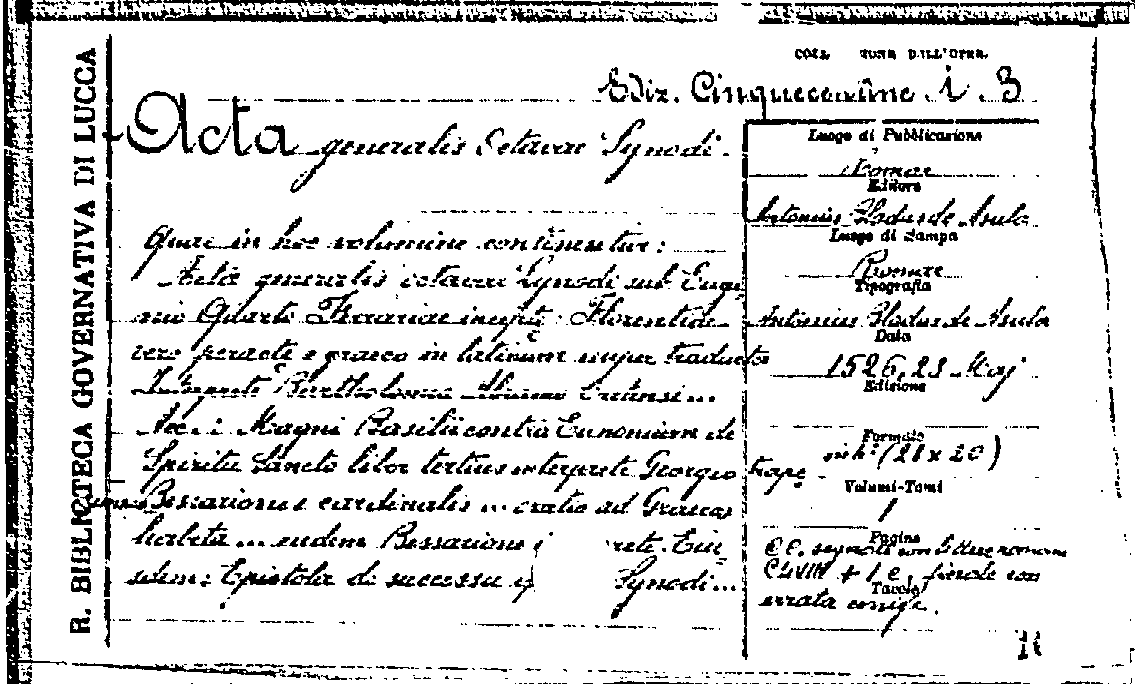 R. BIBLIOTECA GOVERNATIVA DI LUCCA
DELL'OPERA
Ediz. Cinquecentine i. 3
Acta generalis Octavae Synodi.
Quae in hoc volumine continentur:
Acta generalis octavae Synodi sub Euge-
nio Quarto Ferrariae incepta: Florentiae
vero peracta e graeco in latinum nuper traducta
Interprete Bartholomaeo Cretensi...
Magni Basilii contra Eunomium de
Spiritu Sancto liber tertius interprete Georgio trape
Bessarionis cardinalis ... oratio ad Graecos
habita ... eodem Bessarione rete. Eiu-
sdem: Epistola de successu Synodi...
Luogo di Pubblicazione
Romae
Editore
Antonius Bladus de Asula
Luogo di Stampa
Romae
Tipografia
Antonius Bladus de Asula
Data
1526, 23 Maj
Edizione
Formato
in 4° (28 x 20)
Volumi-Tomi
1
Pagine
CC. segnate con lettere romane
CLVIII + 1 c. finale con
Tavole
errata corrige.